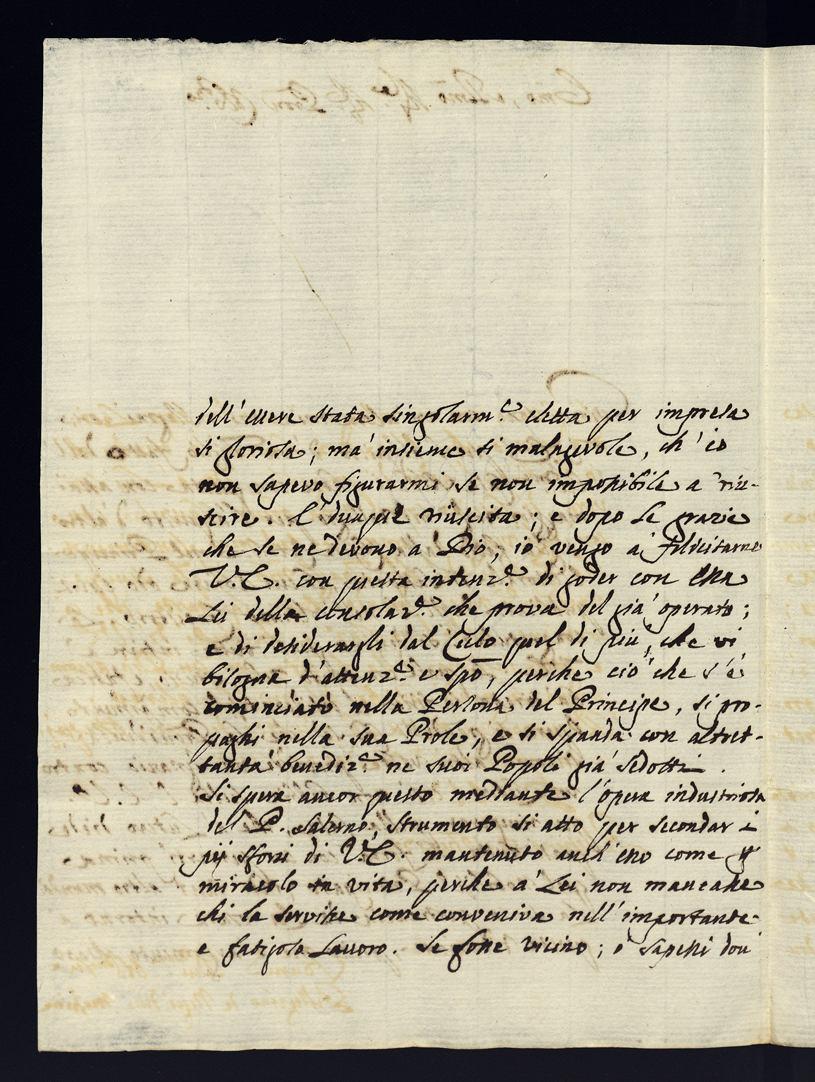 dell'essere stata singolarm.e eletta per impresa
si gloriosa; ma' insieme si malagevole, ch'io
non sapevo figurarmi se non impossibile a' riu-
scire. È dunque riuscita; e dopo le grazie
che se ne devono a' Dio, io vengo a' felicitarne
V.E. con questa intenz.e di goder con essa
Lei della consolaz.e che prova del già operato;
e di desiderargli dal Cielo quel di più, che vi
bisogna d'attenz.e e
perche ciò che s'è
cominciato nella Persona del Principe, si pro-
paghi nella sua Prole, e si spanda con altret-
tanta benediz.e ne suoi Popoli già sedotti.
Si spera ancor questo mediante l'opera industriosa
del P. Salerno, strumento si atto per secondar i
pij sforzi di V.E. mantenuto anch'esso come p
miracolo in vita, perche a' Lei non mancasse
chi la servisse come conveniva nell'importante
e fatigoso Lavoro. Se fosse vicino; o' sapessi dou'